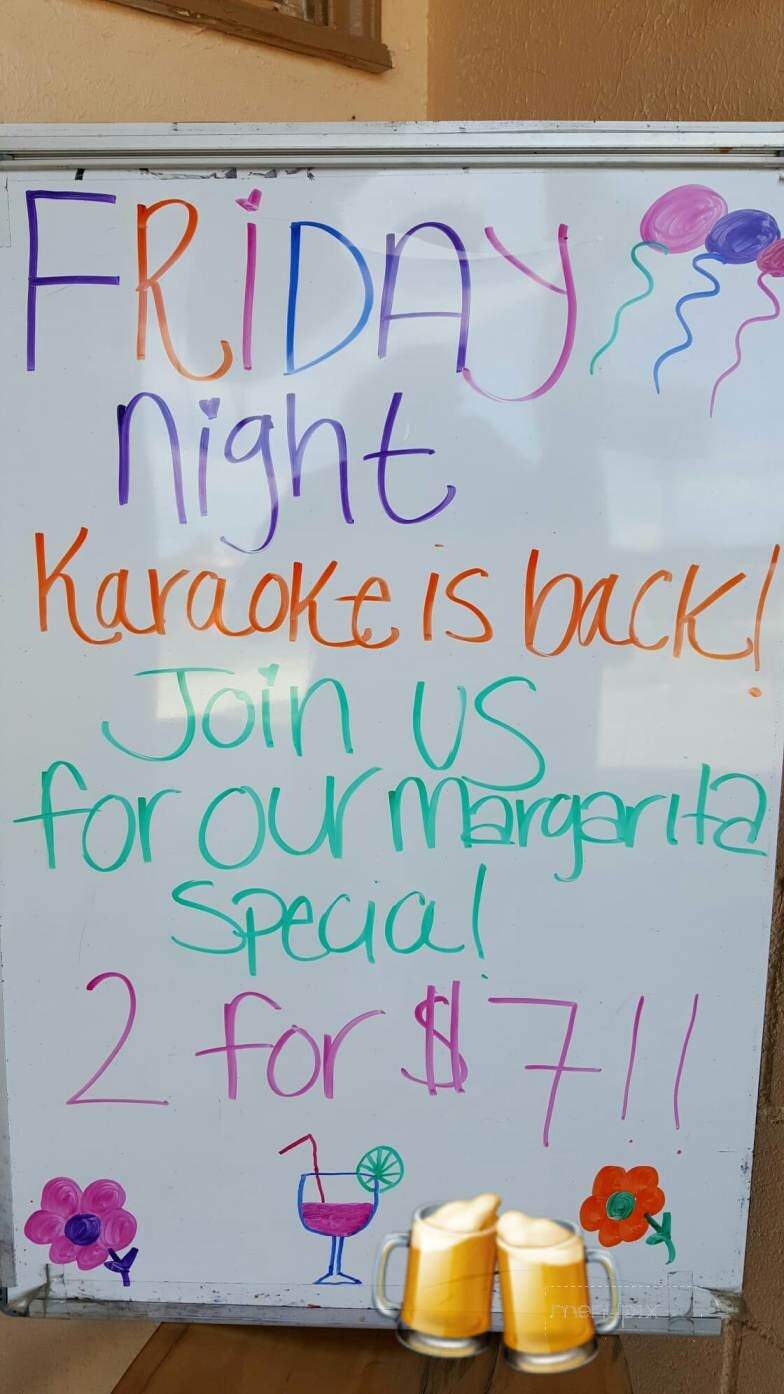 FRiDAY
night
Karaoke is back!
Join us
for our margarita
Special
2 for $7!!
menupix